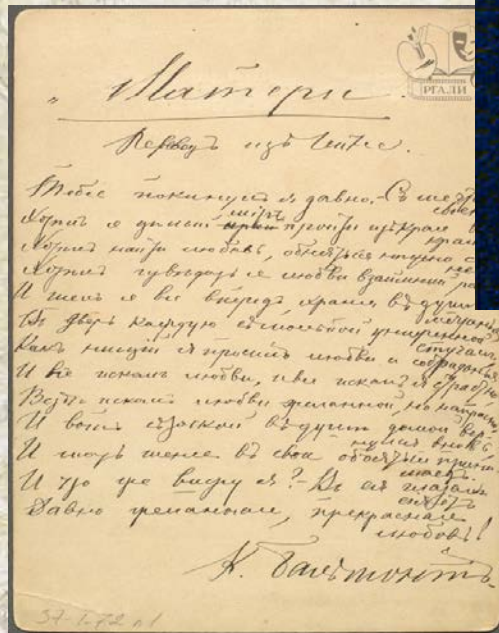 РГАЛИ
„ Матери.
Переводъ изъ Гейне.
Тебя покинулъ я давно. – Съ
Хотѣлъ я цѣлый міръ пройти изъ края въ
край
Хотѣлъ найти любовь, обняться нѣжно с
Хотѣлъ извѣдать я любви взаимной ра
И шелъ я все впередъ храня въ душѣ
мечтанья
Въ дверь каждую съ мольбой униженной
стучалъ
Какъ нищій я просилъ любви и состраданья
И все искалъ любви, и все искалъ я
Вездѣ искалъ любви желанной, но напрасно,
И вотъ съ тоской въ душѣ домой вер-
нулся вновь,
И ты меня въ свои объятья приня-
И что же вижу я? – Въ ея глазахъ
Давно желанная, прекрасная
любовь!
К. Бальмонтъ.
37-1-72 л1